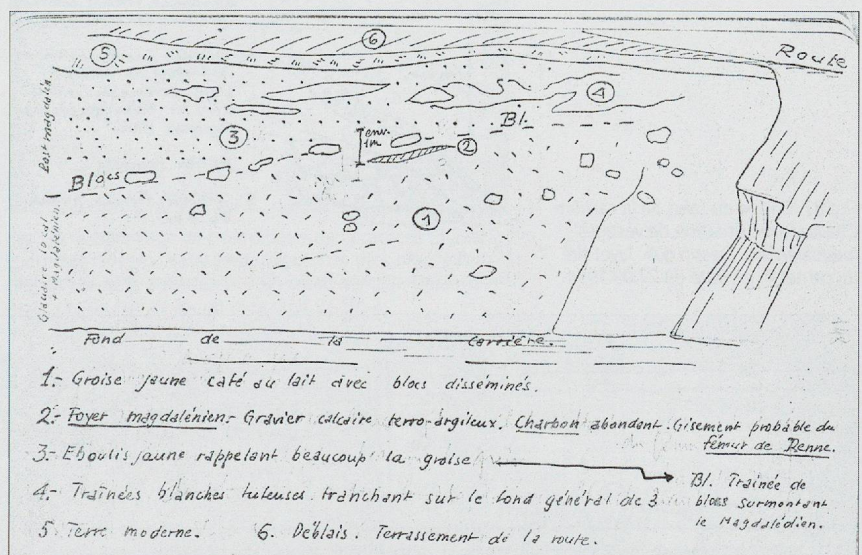 6
5
Route
4
Bl.
3
env. 1m
2
Post magdalén.
Blocs
1
Glaciaire local + Magdalénien.
Fond de la Carrière.
1.- Groise jaune café au lait avec blocs disséminés.
2.- Foyer magdalénien.- Gravier calcaire terro-argileux. Charbon abondant. Gisement probable du
fémur de Renne.
3.- Eboulis jaune rappelant beaucoup la groise
Bl. Traînée de
blocs surmontant
le Magdalédien.
4.- Traînées blanches tufeuses tranchant sur le fond général de 3
5 Terre moderne. 6. Déblais. Terrassement de la route.